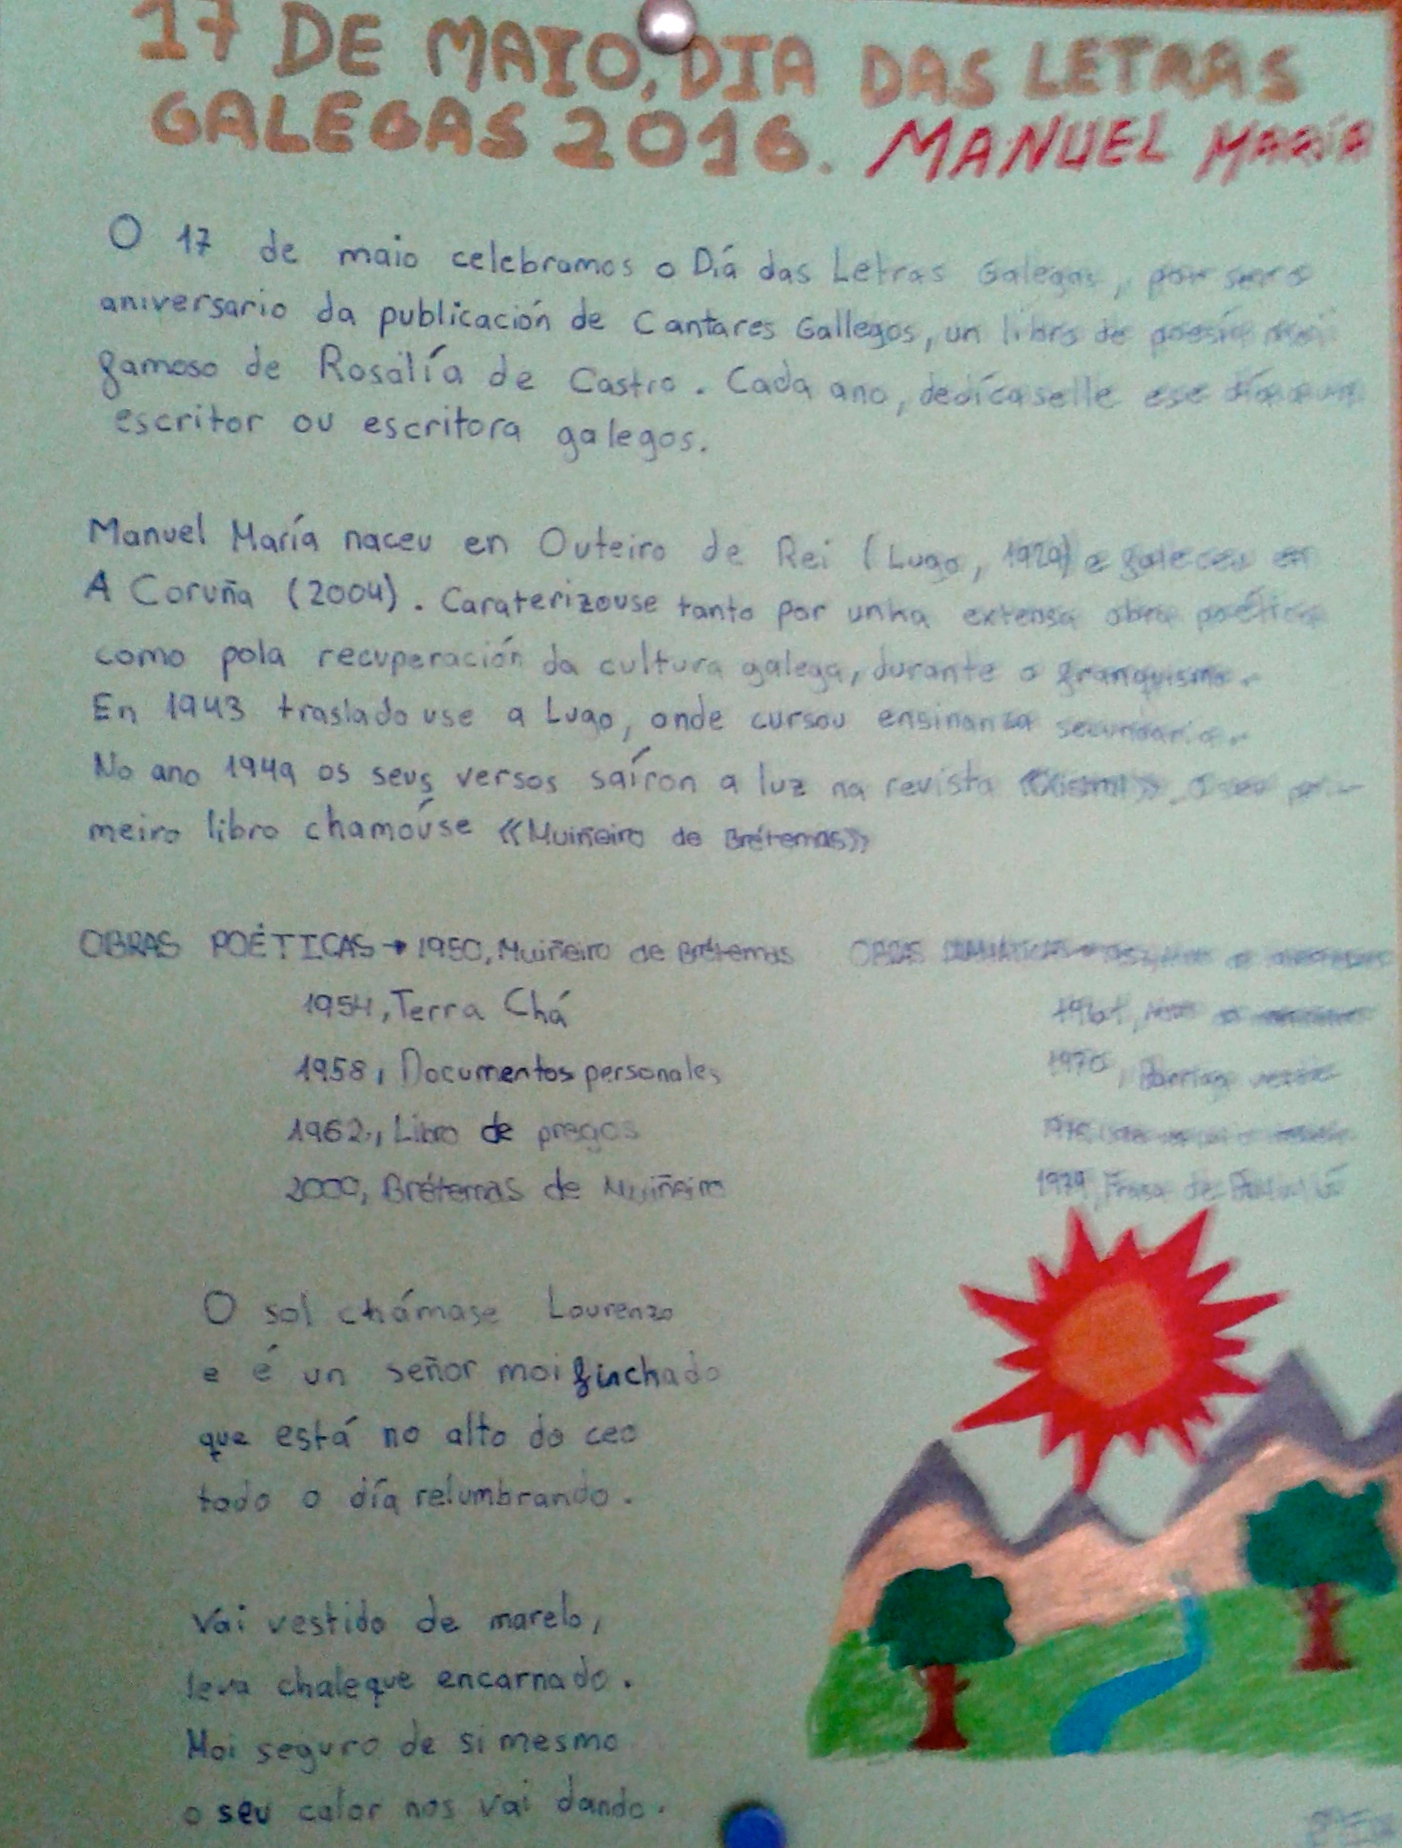 17 DE MAIO, DIA DAS LETRAS
GALEGAS 2016. MANUEL MARÍA
O 17 de maio celebramos o Día das Letras Galegas, por ser o
aniversario da publicación de Cantares Gallegos, un libro de poesía moi
famoso de Rosalía de Castro. Cada ano, dedícaselle ese día a un
escritor ou escritora galegos.
Manuel María naceu en Outeiro de Rei (Lugo, 1929) e faleceu en
A Coruña (2004). Caraterizouse tanto por unha extensa obra poética
como pola recuperación da cultura galega, durante o franquismo.
En 1943 trasladouse a Lugo, onde cursou ensinanza secundaria.
No ano 1949 os seus versos saíron a luz na revista o seu pri-
meiro libro chamóuse «Muiñeiro de Brétemas»
OBRAS POÉTICAS → 1950, Muiñeiro de Brétemas OBRAS DRAMÁTICAS →
1954, Terra Chá
1961,
1958, Documentos personales
1970, Barriga verde
1962, Libro de pregos
2000, Brétemas de Muiñeiro
1979, Frasa de
O sol chámase Lourenzo
e é un señor moi finchado
que está no alto do ceo
todo o día relumbrando.
Vai vestido de marelo,
leva chaleque encarnado.
Moi seguro de si mesmo
o seu calor nos vai dando.